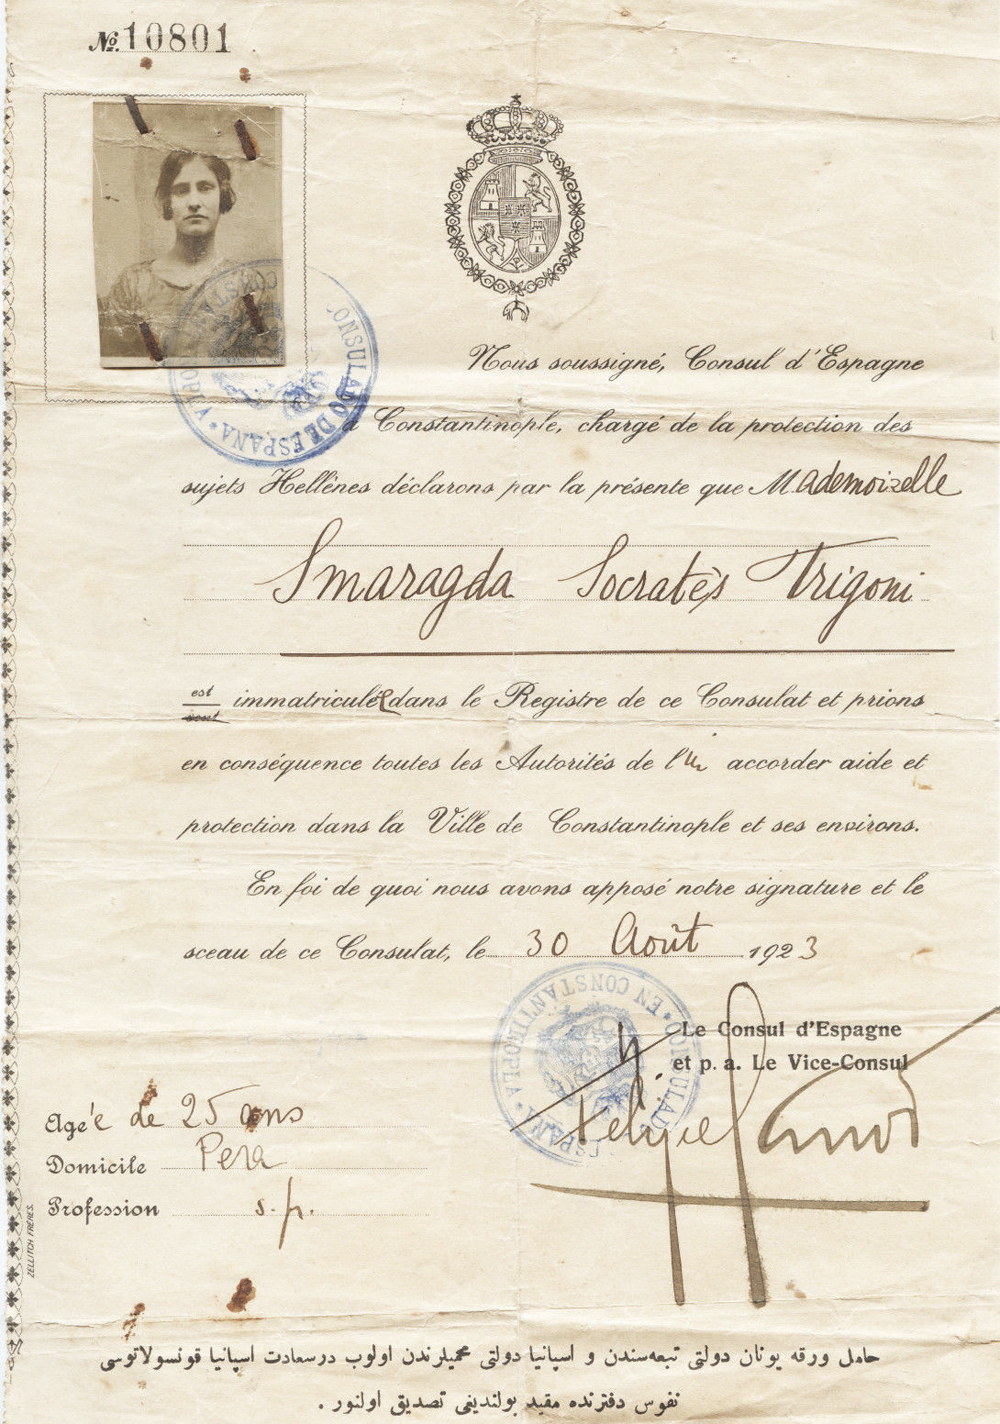 № 10801
CONSULADO DE ESPAÑA
Nous soussigné, Consul d'Espagne
à Constantinople, chargé de la protection des
sujets Hellènes déclarons par la présente que Mademoizelle
Smaragda Socratès Trigoni
est
sont
immatriculée dans le Registre de ce Consulat et prions
en conséquence toutes les Autorités de lui accorder aide et
protection dans la Ville de Constantinople et ses environs.
En foi de quoi nous avons apposé notre signature et le
sceau de ce Consulat, le 30 Août 1923
Le Consul d'Espagne
et p. a. Le Vice-Consul
CONSULADO DE ESPAÑA • EN CONSTANTINOPLA •
Agée de 25 ans
Domicile Pera
Profession s. p.
ZELLITCH FRÈRES.
حامل ورقه یونان دولتی تبعه‌سندن و اسپانیا دولتی محمیلرندن اولوب درسعادت اسپانیا قونسولاتوسی
نفوس دفترنده مقید بولندیغی تصدیق اولنور .